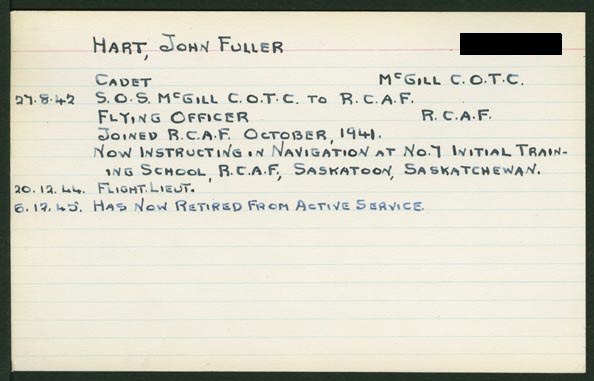 HART, JOHN FULLER
CADET McGILL C.O.T.C.
27.8.42 S.O.S. McGILL C.O.T.C. TO R.C.A.F.
FLYING OFFICER R.C.A.F.
JOINED R.C.A.F. OCTOBER, 1941.
NOW INSTRUCTING IN NAVIGATION AT NO.7 INITIAL TRAIN-
ING SCHOOL, R.C.A.F., SASKATOON, SASKATCHEWAN.
20.12.44. FLIGHT.LIEUT.
6.12.45. HAS NOW RETIRED FROM ACTIVE SERVICE.